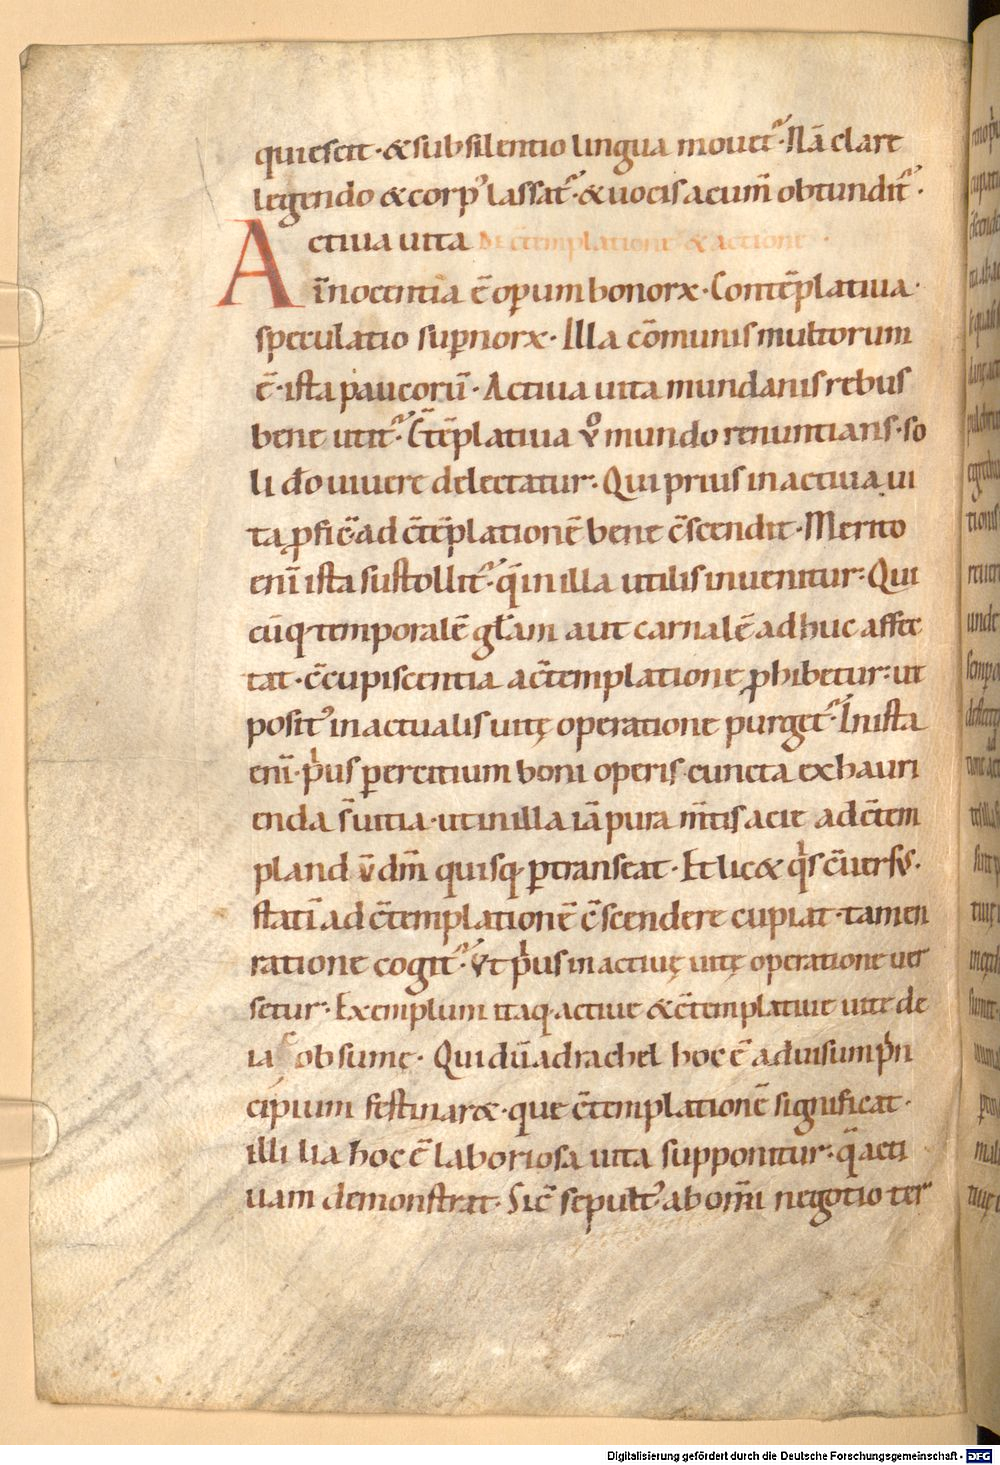 quiescit · & sub silentio lingua mouet᷑· Nā clare
legendo & corpꝰ lassat᷑· & uocis acum̄ obtundit᷑·
Actiua uita DE c̄templatione & actione ·
īnocentia ē oꝑum bonorꝝ· Contēplatiua·
speculatio suꝑnorꝝ· Illa cōmunis multorum
ē· ista paucorū· Actiua uita mundanis rebus
bene utit᷑· C̄tēplatiua v̊ mundo renuntians· so
li dō uiuere delectatur· Qui prius in actiua ui
ta ꝓfic̄· ad c̄tēplationē bene c̄scendit· Merito
enī ista sustollit᷑· q̄ in illa utilis inuenitur· Qui
cūq· temporalē gl̄am aut carnalē adhuc affec
tat· c̄cupiscentia a c̄templatione ꝓhibetur· ut
positꝰ in actualis uitę operatione purget᷑· In ista
enī· pͥus ꝑ ercitium boni operis cuncta exhauri
enda s̄t uitia· ut in illa iā pura m̄tis acie ad c̄tem
pland v̄ dm̄ quisq· ꝑtranseat· Et lic& qͥs c̄uersꝰ·
statī ad c̄templationē c̄scendere cupiat· tamen
ratione cogit᷑· vt pͥus in actiuę uitę operatione uer
setur· Exemplum itaq· actiue & c̄templatiue uite de
iacob sume· Qui dū ad rachel hoc ē ad uisum pͥn
cipium festinar&· que c̄templationē significat·
illi lia hoc ē laboriosa uita supponitur· q̄ acti
uam demonstrat· Sic̄ sepultꝰ ab om̄i negotio ter
Digitalisierung gefördert durch die Deutsche Forschungsgemeinschaft - DFG